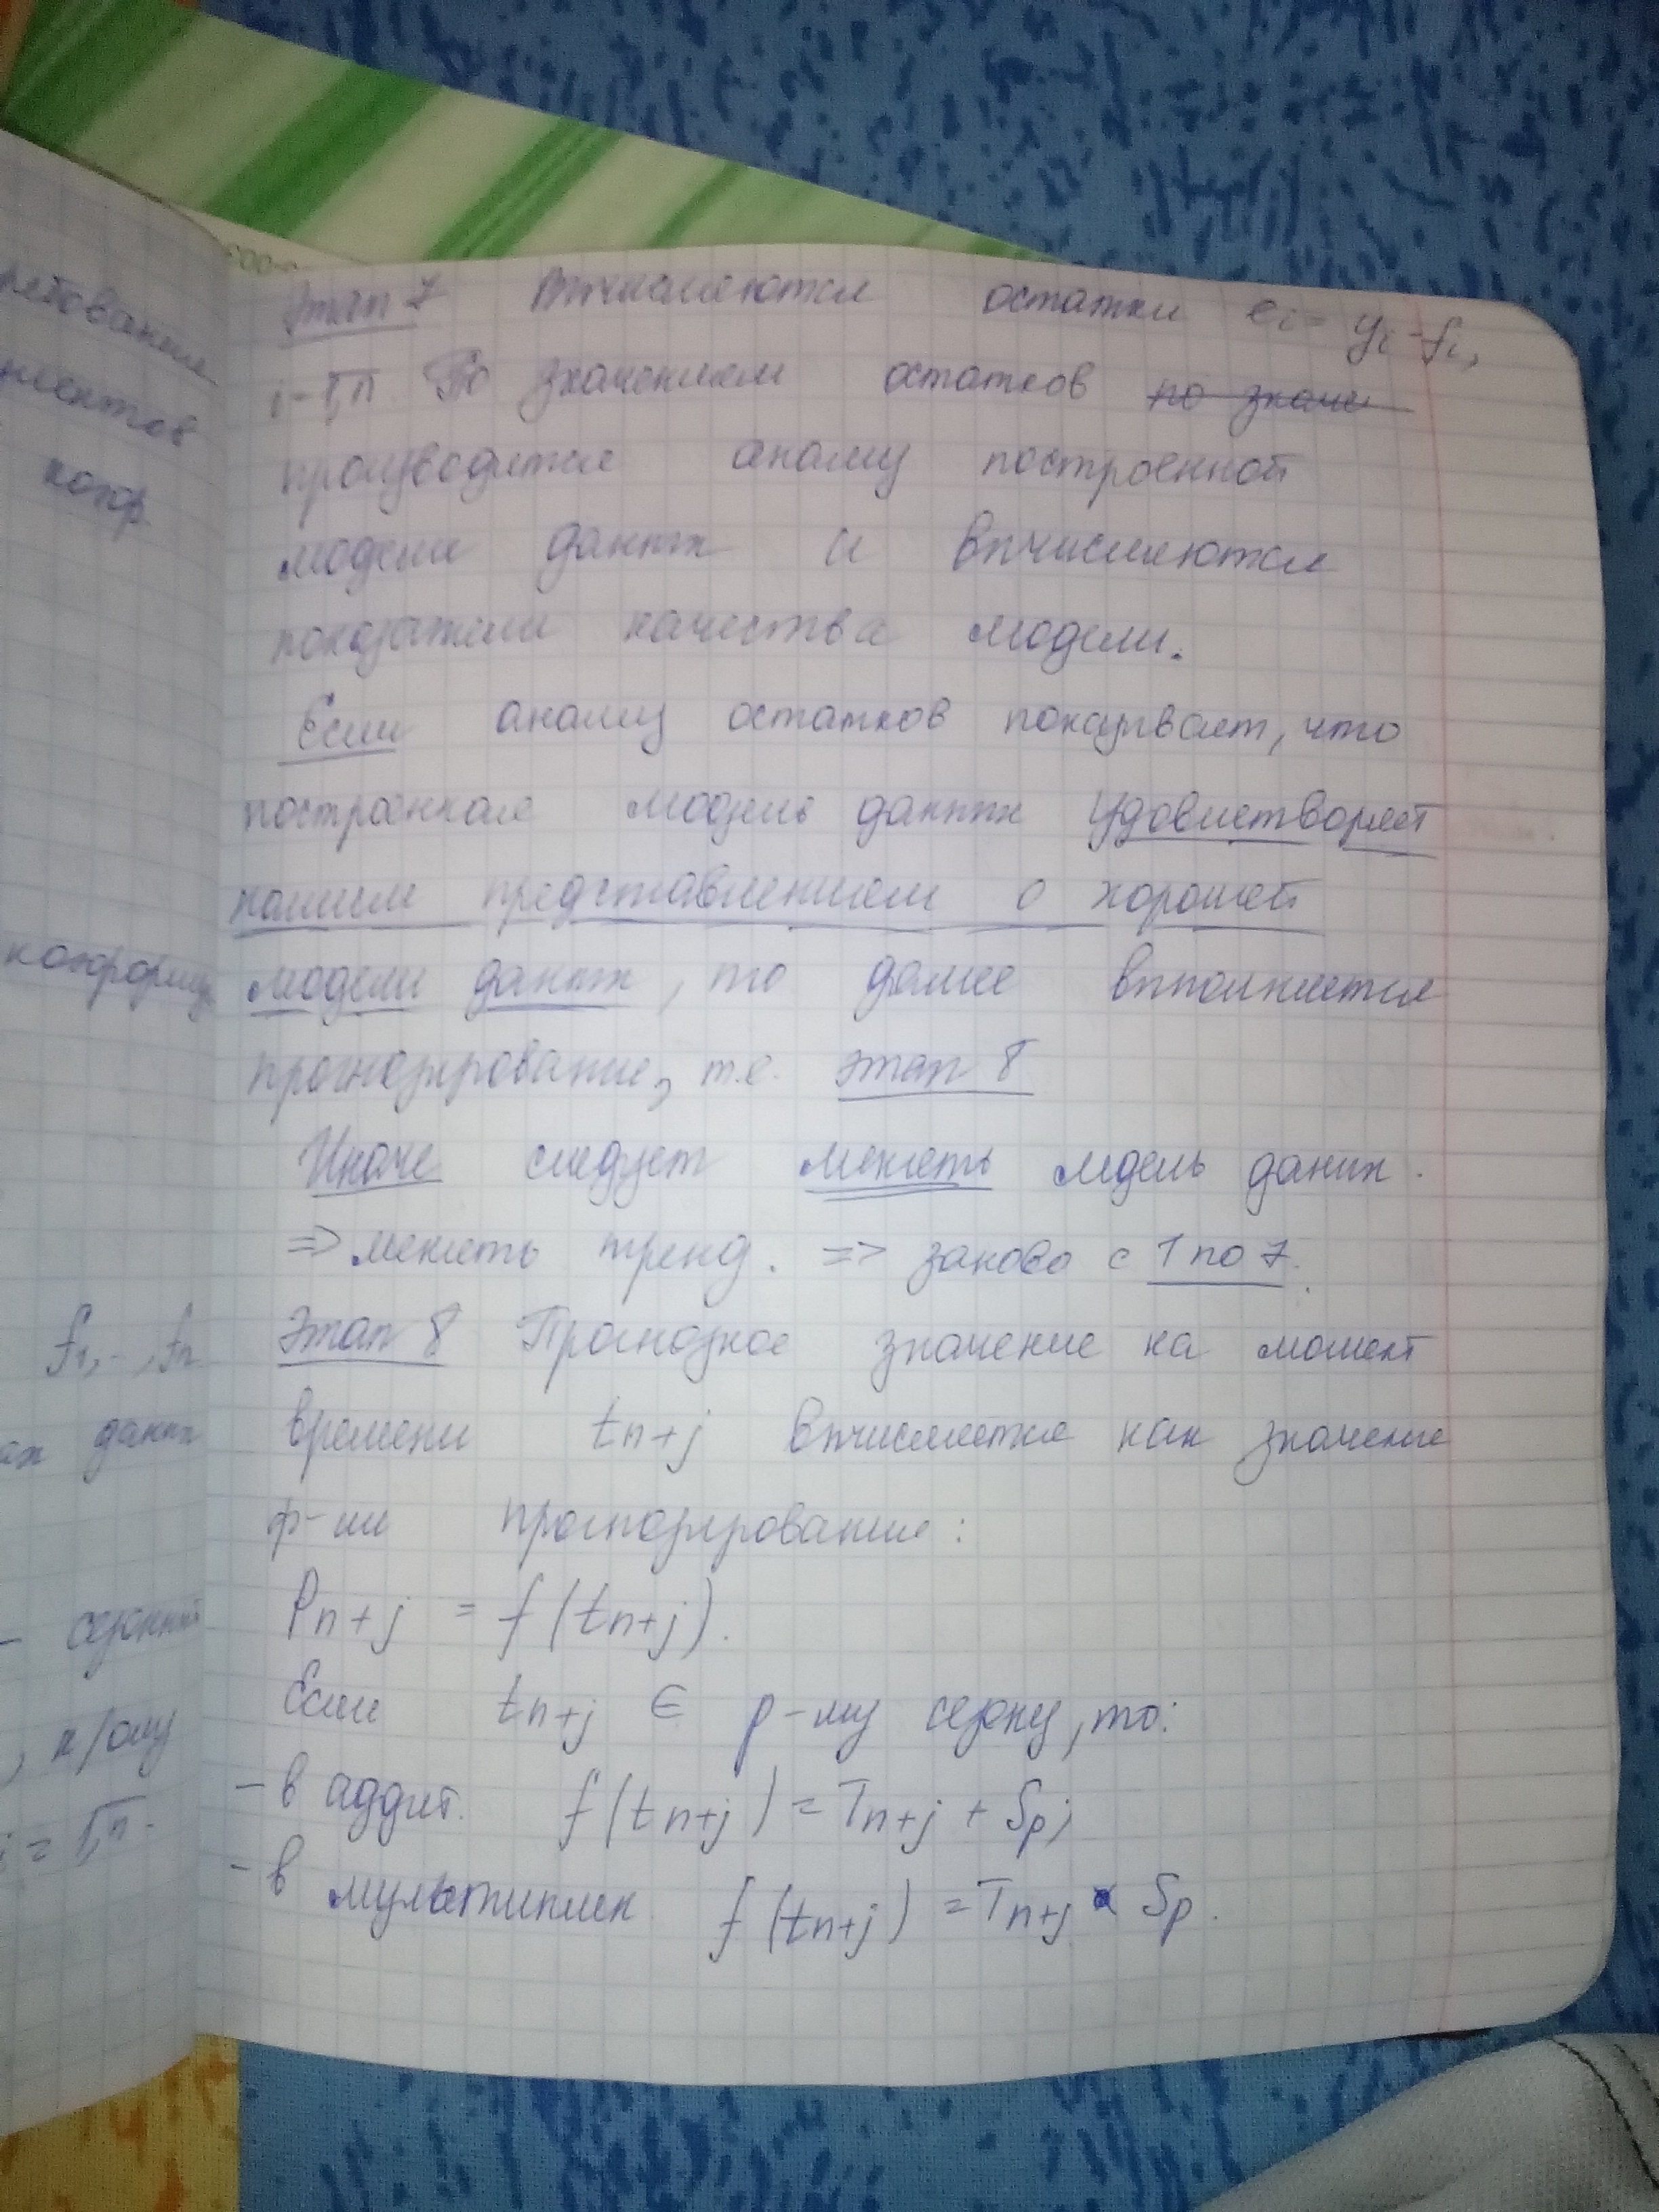 ребования
ментов
когр
конформу
f₁, .. , fₙ
ах данных
- сезонный
, к/ому
i = 1,n.
Этап 7 Вычисляются остатки eᵢ = yᵢ - fᵢ,
i = 1,n. По значениям остатков по значе
производится анализ построенной
модели данных и вычисляются
показатели качества модели.
Если анализ остатков показывает, что
построенная модель данных удовлетворяет
нашим представлениям о хорошей
модели данных, то далее выполняется
прогнозирование, т.е. этап 8
Иначе следует менять мдель даних.
=> менять тренд. => заново с 1 по 7.
Этап 8 Прогнозное значение на момент
времени tn+j вычисляется как значение
ф-ии прогнозирования:
Pn+j = f(tn+j).
Если tn+j ∈ p-му сезону, то:
- в аддит. f(tn+j) = Tn+j + Sp;
- в мультиплик. f(tn+j) = Tn+j * Sp.